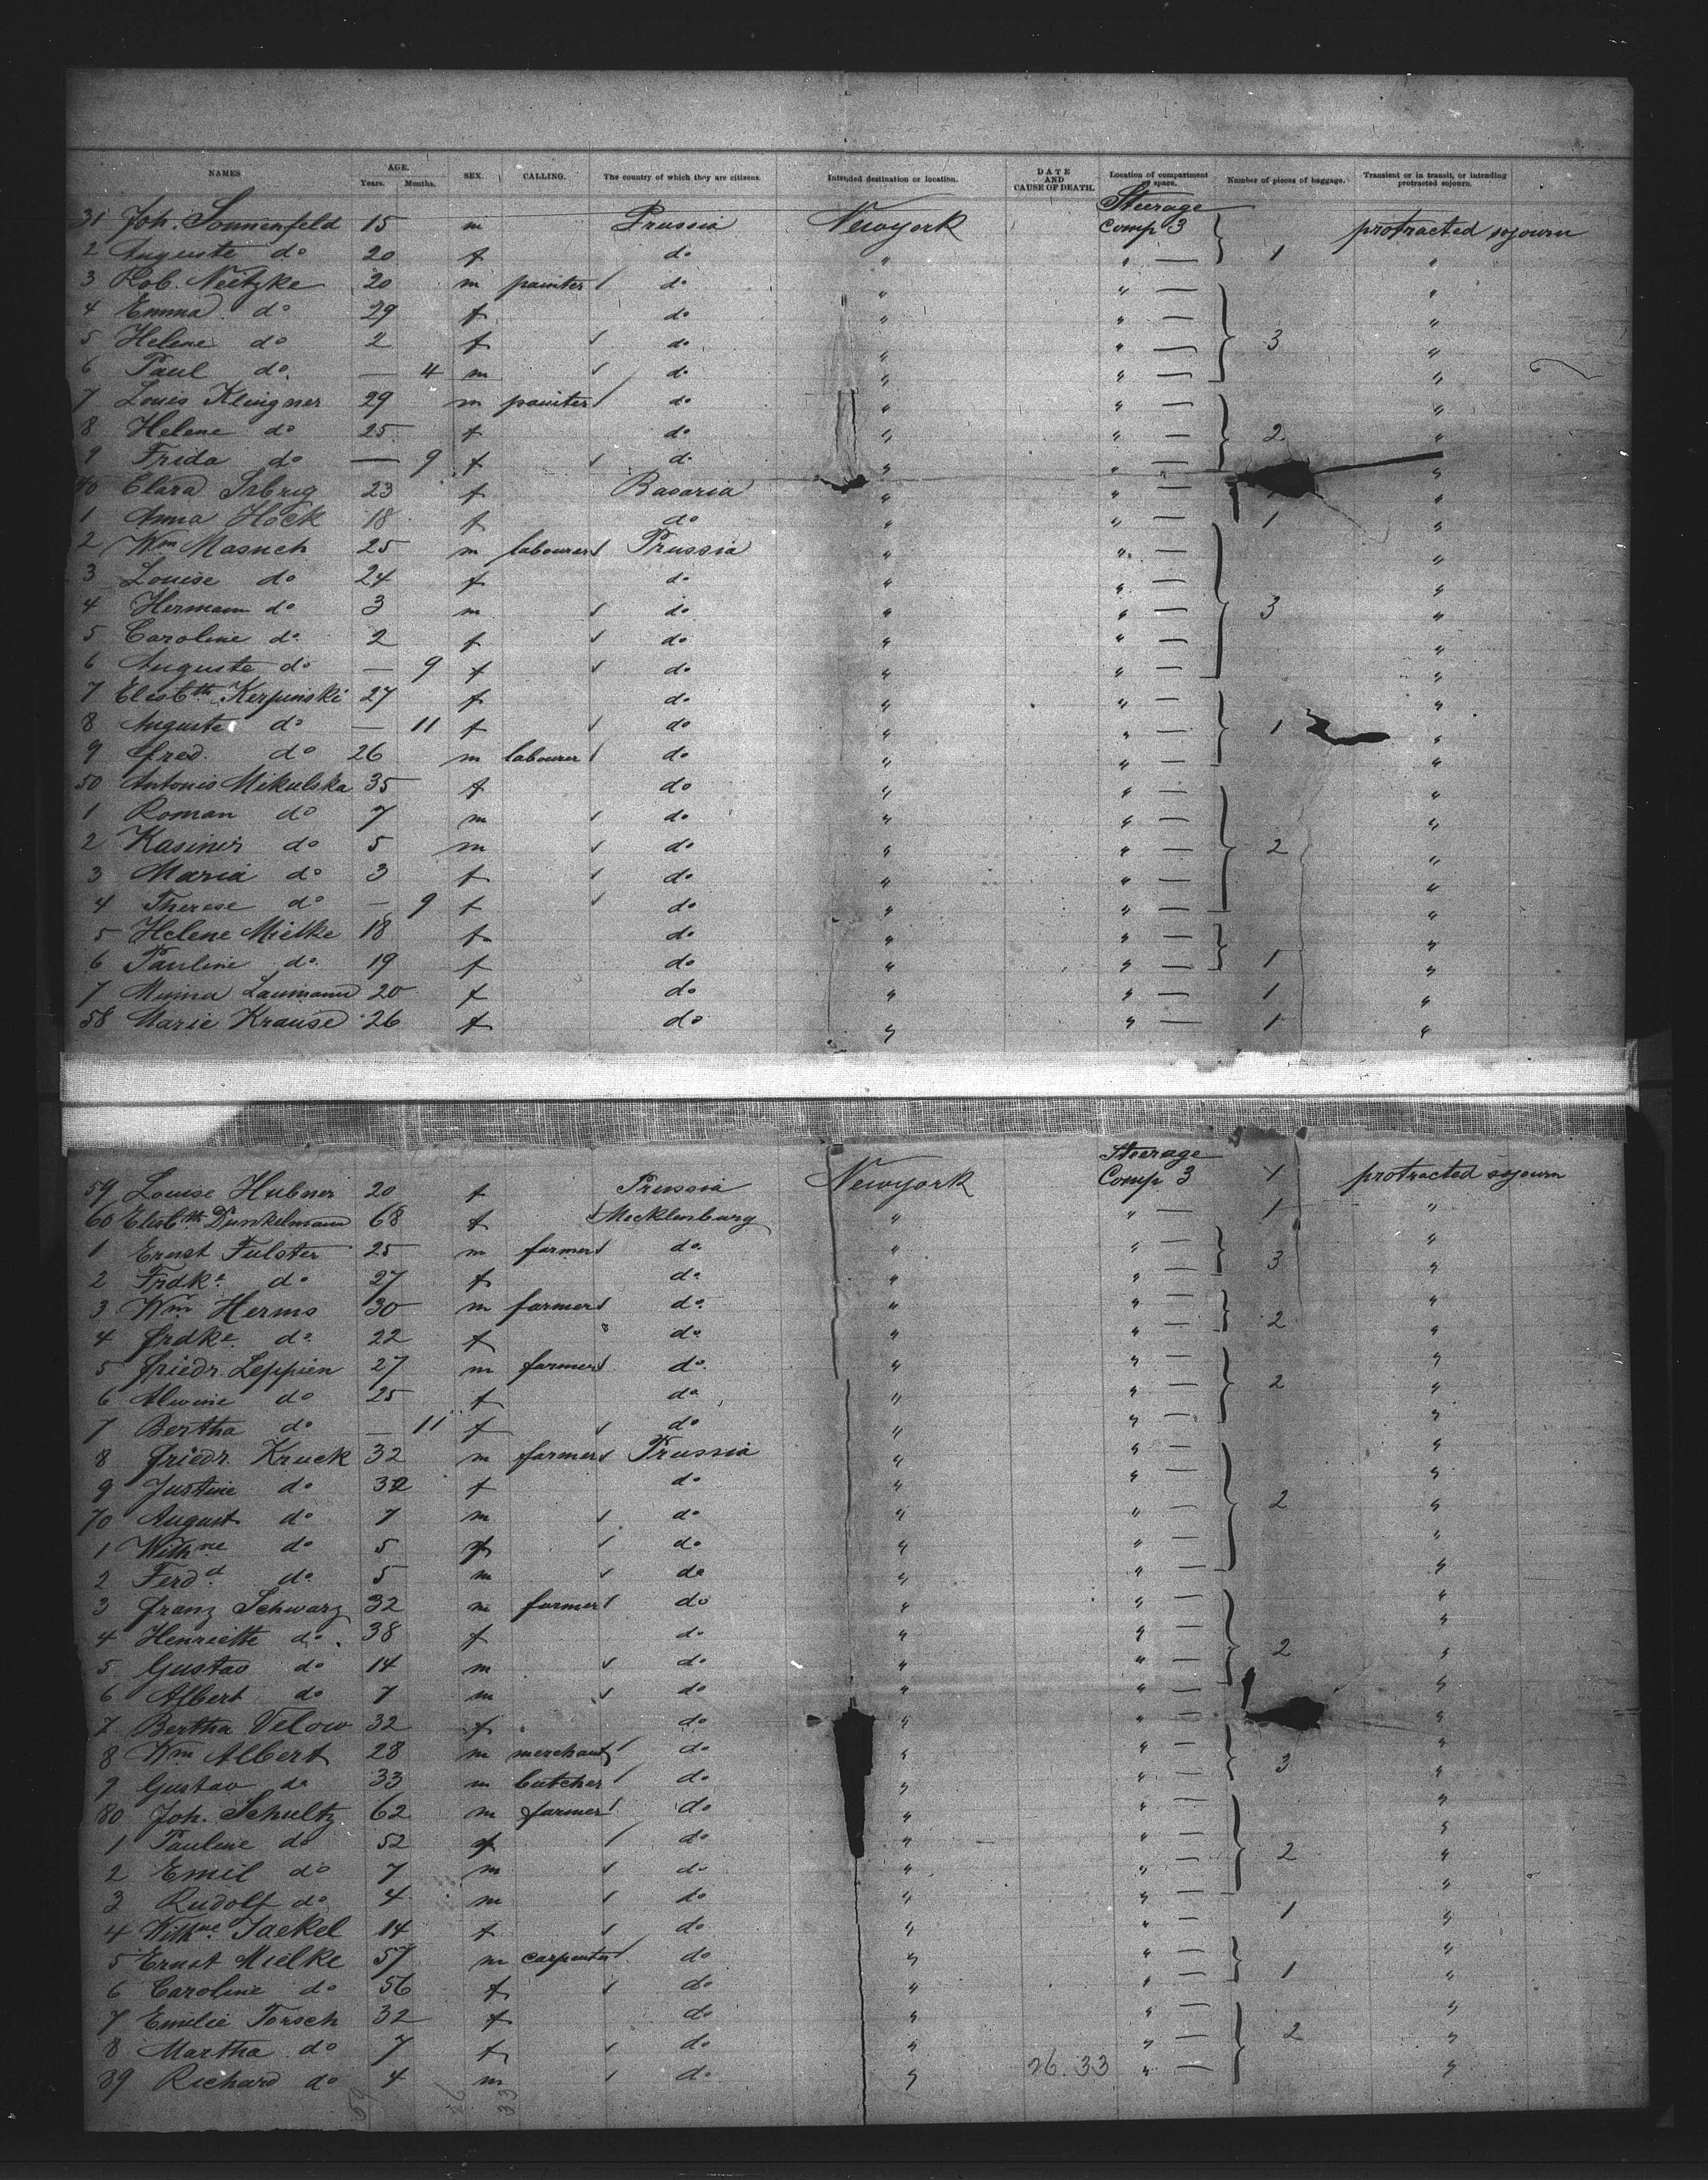 NAMES AGE. Years. Months. SEX. CALLING. The country of which they are citizens. Intended destination or location. DATE AND CAUSE OF DEATH. Location of compartment or space. Number of pieces of baggage. Transient or in transit, or intending protracted sojourn.
Steerage
31 Joh. Sonnenfeld 15 m Prussia Newyork Comp 3 protracted sojourn
2 Auguste do 20 f do " " — 1 "
3 Rob. Neitzke 20 m painter do " " — "
4 Emma do 29 f do " " — "
5 Helene do 2 f do " " — 3 "
6 Paul do — 4 m do " " — "
7 Louis Klingner 29 m painter do " " — "
8 Helene do 25 f do " " — 2 "
9 Frida do — 9 f do " " — "
40 Clara 23 f Bavaria " " — "
1 Anna Höck 18 f do " " — 1 "
2 Wm Masuch 25 m labourer Prussia " " — "
3 Louise do 24 f do " " — "
4 Hermann do 3 m do " " — 3 "
5 Caroline do 2 f do " " — "
6 Auguste do — 9 f do " " — "
7 Elisbth Kerpinski 27 f do " " — "
8 Auguste do — 11 f do " " — 1 "
9 Fred. do 26 m labourer do " " — "
50 Antonis Mikulska 35 f do " " — "
1 Roman do 7 m do " " — "
2 Kasimir do 5 m do " " — 2 "
3 Maria do 3 f do " " — "
4 Therese do — 9 f do " " — "
5 Helene Mielke 18 f do " " — "
6 Pauline do 19 f do " " — 1 "
7 Minna Laumann 20 f do " " — 1 "
58 Marie Krause 26 f do " " — 1 "
Steerage
59 Louise Hubner 20 f Prussia Newyork Comp 3 1 protracted sojourn
60 Elisbth Dunkelmann 68 f Mecklenburg " " — 1 "
1 Ernst Fulster 25 m farmer do " " — "
2 Frdke do 27 f do " " — 3 "
3 Wm Herms 30 m farmer do " " — "
4 Frdke do 22 f do " " — 2 "
5 Friedr. Leppien 27 m farmer do " " — "
6 Alwine do 25 f do " " — 2 "
7 Bertha do — 11 f do " " — "
8 Friedr. Kruck 32 m farmer Prussia " " — "
9 Justine do 32 f do " " — "
70 August do 7 m do " " — 2 "
1 Wilhne do 5 f do " " — "
2 Ferdd do 5 m do " " — "
3 Franz Schwarz 32 m farmer do " " — "
4 Henriette do 38 f do " " — "
5 Gustav do 14 m do " " — 2 "
6 Albert do 7 m do " " — "
7 Bertha Velow 32 f do " " — "
8 Wm Albert 28 m merchant do " " — "
9 Gustav do 33 m butcher do " " — 3 "
80 Joh. Schultz 62 m farmer do " " — "
1 Pauline do 52 f do " " — "
2 Emil do 7 m do " " — 2 "
3 Rudolf do 4 m do " " — "
4 Wilhne Jaekel 14 f do " " — 1 "
5 Ernst Mielke 57 m carpenter do " " — "
6 Caroline do 56 f do " " — 1 "
7 Emilie Torsch 32 f do " " — "
8 Martha do 7 f do " " — 2 "
89 Richard do 4 m do " 26.33 " — "
59 26 33